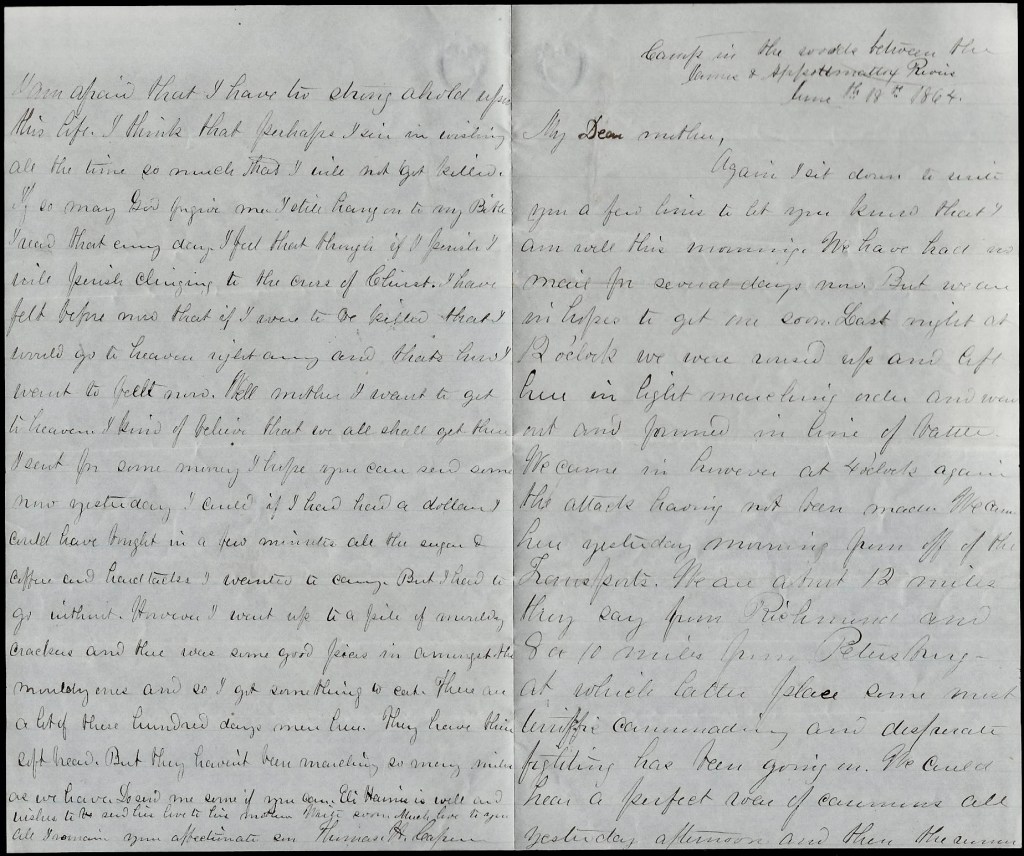 Camp in the woods between the
James & Appottmattox Rivers
June th 18th 1864.
My Dear mother,
Again I sit down to write
you a few lines to let you know that I
am well this morning. We have had no
mail for several days now. But we are
in hopes to get one soon. Last night at
12 oclock we were roused up and left
here in light marching order and went
out and formed in line of battle.
We came in however at 4 oclock again
the attack having not been made. We came
here yesterday morning from off of the
Transports. We are about 12 miles
they say from Richmond and
8 or 10 miles from Petersburg-
at which latter place some most
teriffic cannonading and desperate
fighting has been going on. We could
hear a perfect roar of cannons all
yesterday afternoon and then the
I am afraid that I have too strong a hold upon
this life. I think that perhaps I sin in wishing
all the time so much that I will not get killed.
If so may God forgive me I still hang on to my Bible
I read that every day. I feel that though if I perish I
will perish clinging to the cross of Christ. I have
felt before now that if I were to be killed that I
would go to heaven right away and thats how I
want to feel now. Well mother I want to get
to heaven. I kind of believe that we all shall get there
I sent for some money I hope you can send some
now yesterday I could if I had had a dollar I
could have bought in a few minutes all the sugar &
coffee and hardtacks I wanted to carry. But I had to
go without. However I went up to a pile of mouldy
crackers and there was some good pieces in amongst the
mouldy ones and so I got something to eat. There are
a lot of these hundred days men here. They have their
soft bread. But they havent been marching so many miles
as we have. Do send me some if you can. Eli Harris is well and
wishes to send his love to his mother Write soon. Much love to you
all I remain your affectionate son Thomas H. Capern